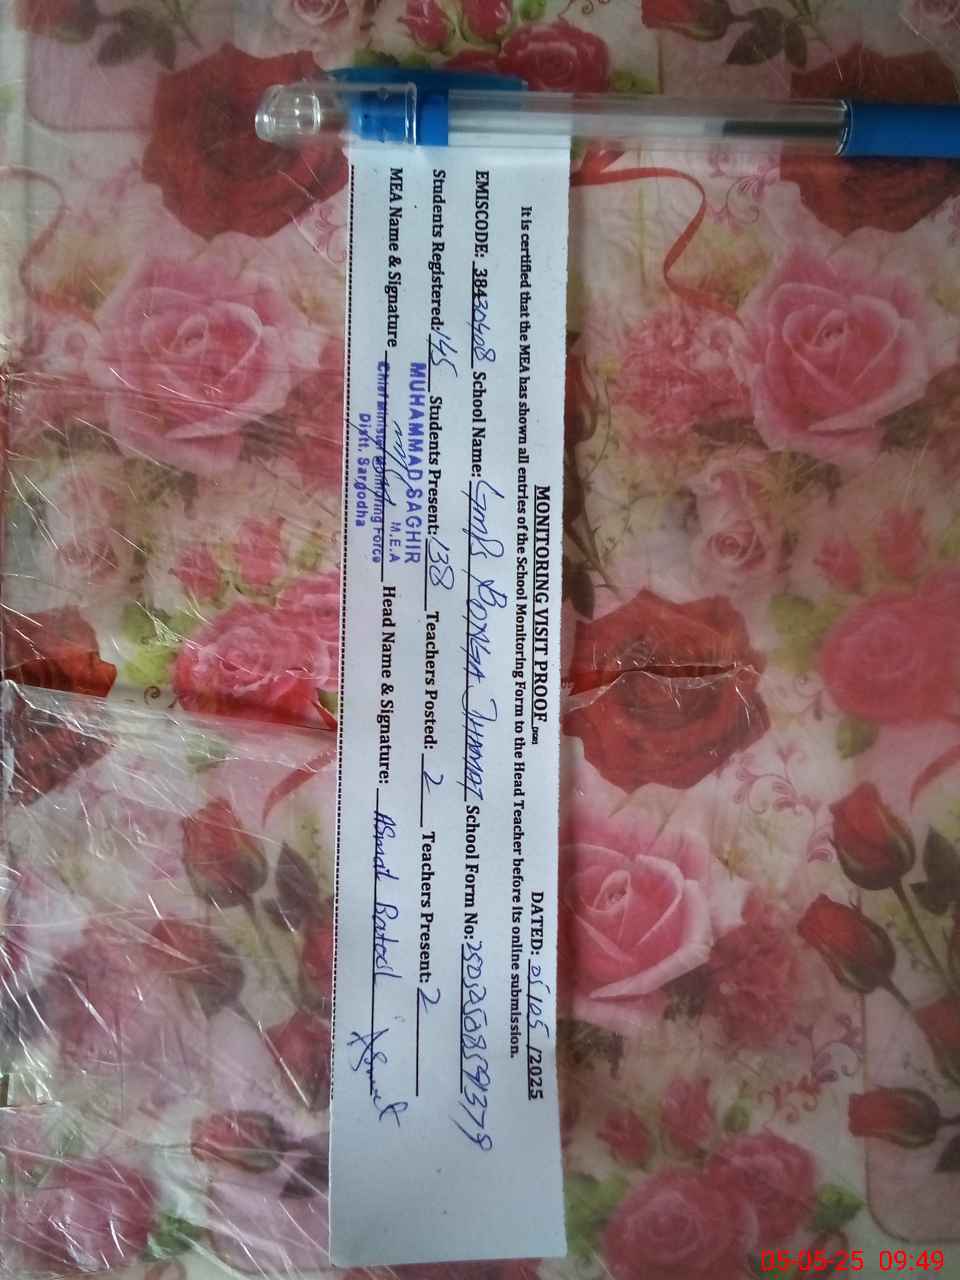 MONITORING VISIT PROOF DATED: 05/05/2025
It is certified that the MEA has shown all entries of the School Monitoring Form to the Head Teacher before its online submission.
EMISCODE: 38430408 School Name: GMPS BONGA JHAMAT School Form No:
Students Registered: 145 Students Present: 138 Teachers Posted: 2 Teachers Present: 2
MEA Name & Signature Head Name & Signature: Asmat Batool Asmat
MUHAMMAD SAGHIR
M.E.A
Chief Minister Monitoring Force
Distt. Sargodha
05-05-25 09:49